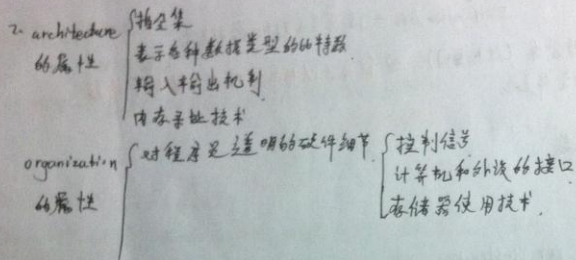 2. architecture 的属性
指令集
表示各种数据类型的的特数
输入输出机制
内存寻址技术
organization 的属性
对程序是透明的硬件细节
控制信号
计算机和外设的接口
存储器使用技术.